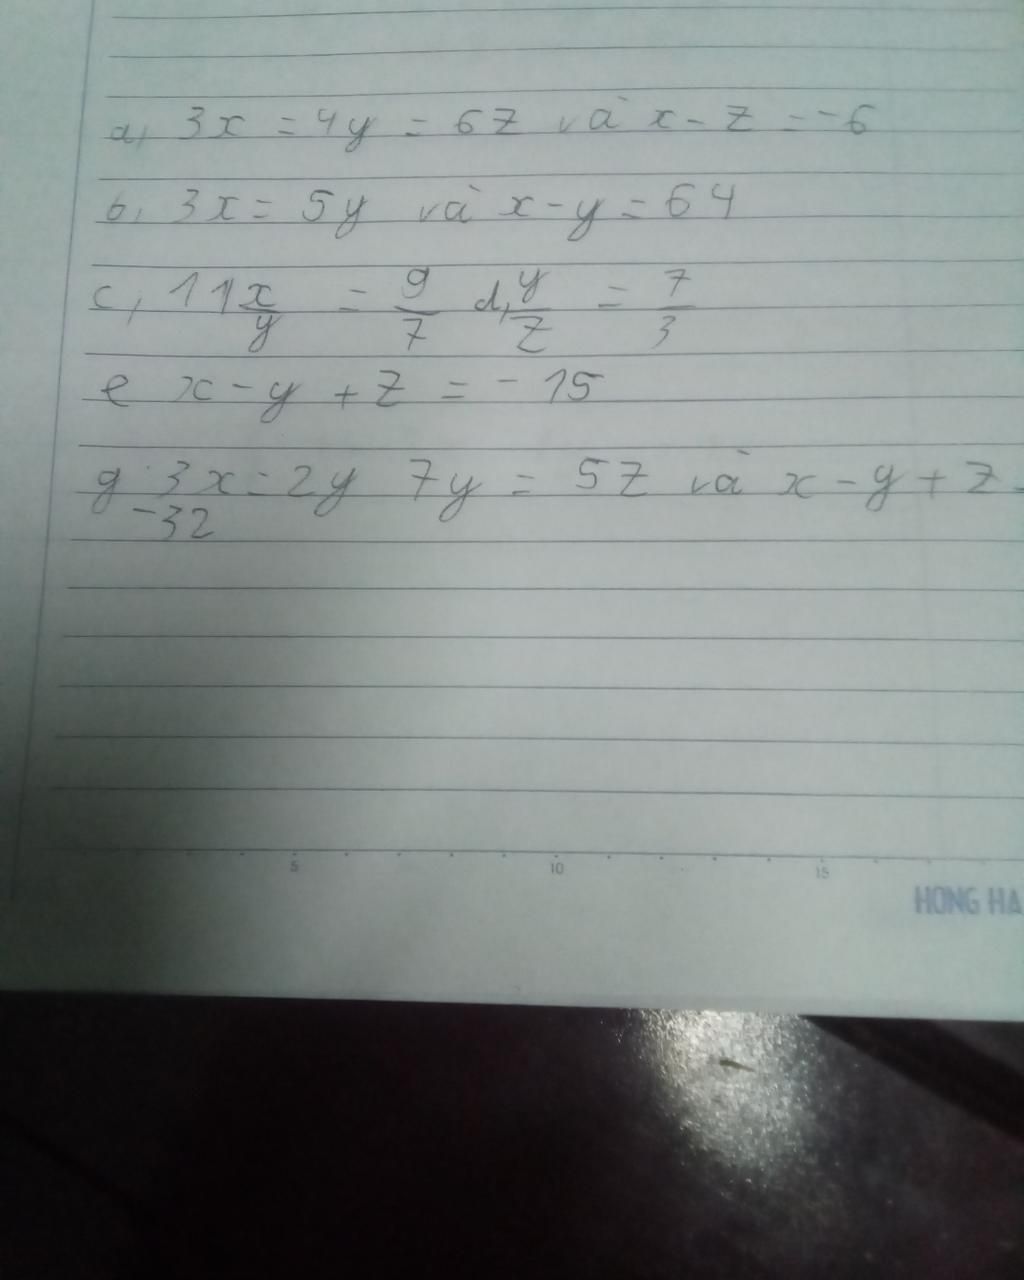 a, 3x = 4y = 6z và x - z = -6
b, 3x = 5y và x - y = 64
c, 11 x/y = 9/7 d, y/z = 7/3
e x - y + z = -15
g 3x = 2y 7y = 5z và x - y + z =
-32
5 10 15
HONG HA